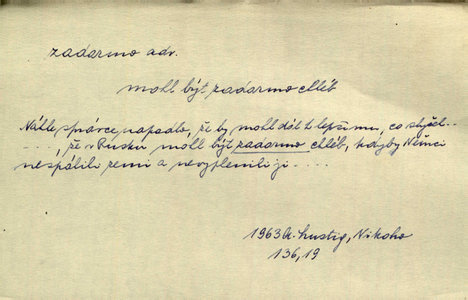 zadarmo adv.
mohl být zadarmo chléb
Náhle správce napadlo, že by mohl dát k lepšímu, co slyšel..
...., že v Rusku mohl být zadarmo chléb, kdyby Němci
nespálili zemi a nevyplenili ji ....
1963 A. Lustig, Nikoho
136,19